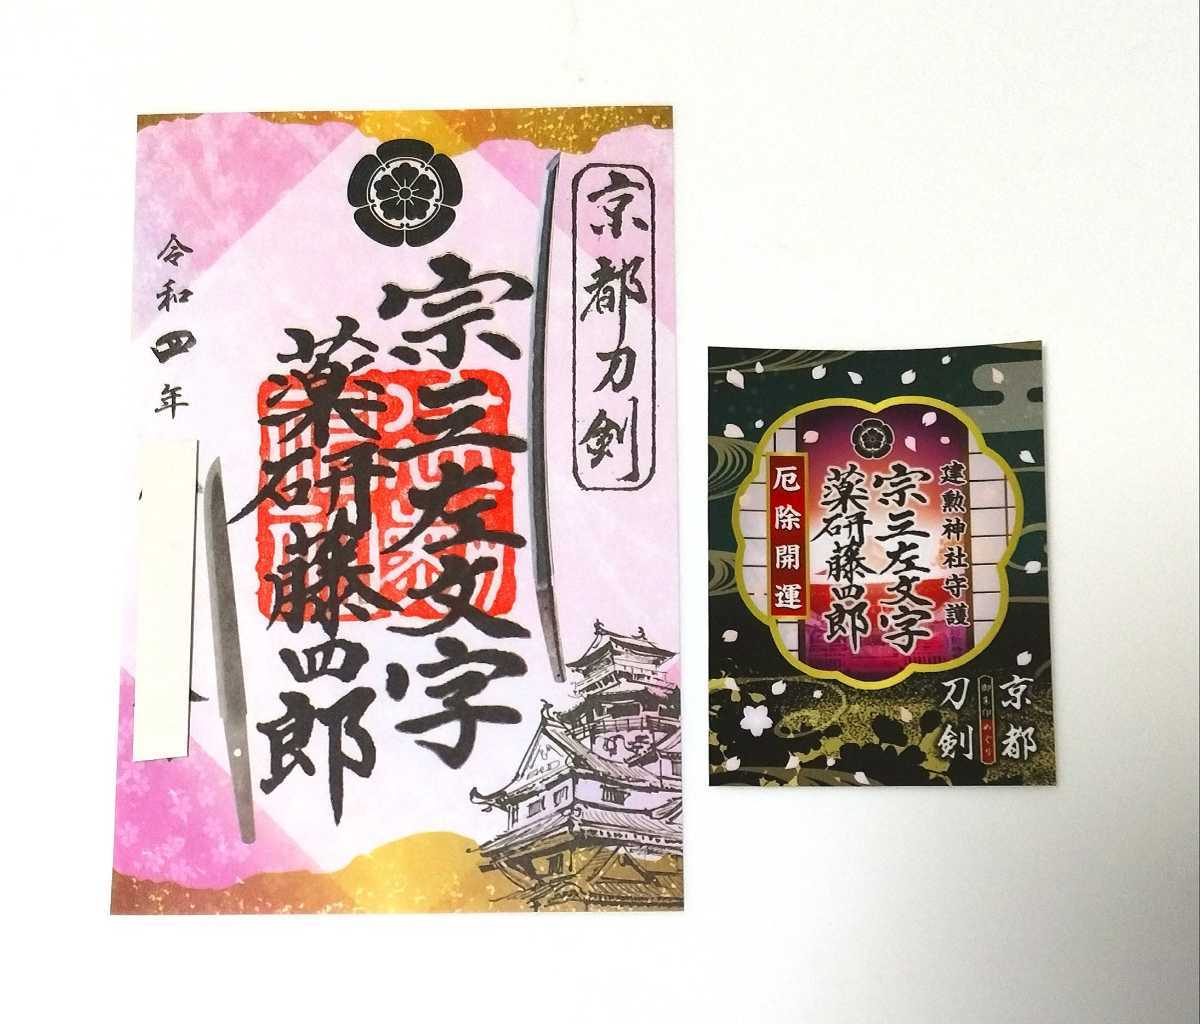 京都刀剣
宗三左文字
薬研藤四郎
令和四年
建勲神社守護
宗三左文字
薬研藤四郎
厄除開運
京都
刀剣